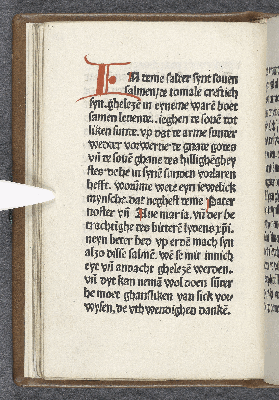 IN teme salter synt souen
salmen, te to male crastich
synt. gheleze in eyneme ware boet
samen leuente.. ieghen te souē tot
liken sunte. vp dat te arme sunter
wedder vorwerue te gnate gotes
vñ te souē ghaue tes hillighēghey
stes de he in synē sunden vorlaren
hefft. worūme wete eyn iewelick
mynsche. dat neghest teme Pater
noster vñ Aue maria. vñ der be
trachtighe tes bitterē lydens xp̄i.
neyn beter bed vp erdē mach syn
alzo disse salmē. wē se mit innich
eyt vñ andacht ghelezē werden.
vñ dyt kan nemā wol doen sūter
he moet ghansliken van sick vor
wysen, de vthwendighen dankē.